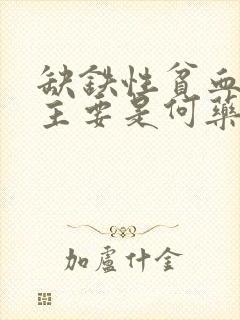 缺鉄性貧血
主要是何藥
加盧什金